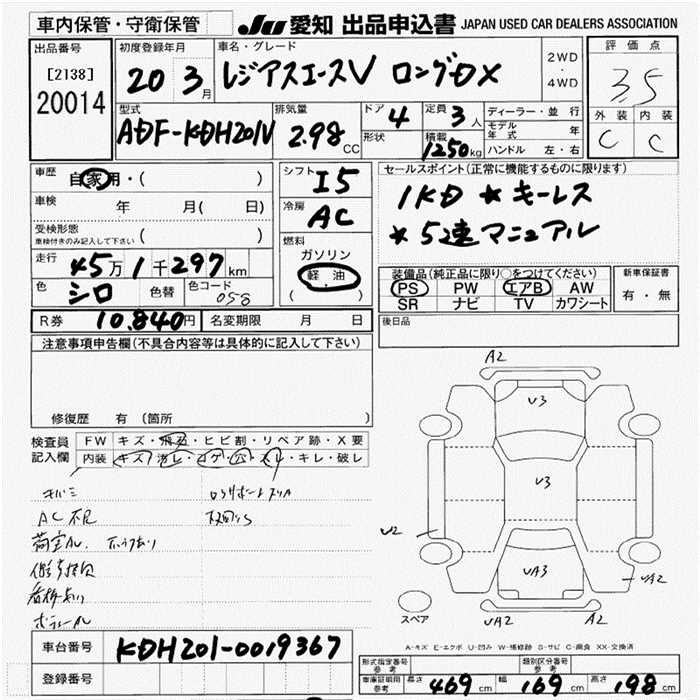 車内保管・守衛保管 JU 愛知 出品申込書 JAPAN USED CAR DEALERS ASSOCIATION
出品番号 [2138] 20014
初度登録年月 20 3月
車名・グレード レジアスエースV ロングDX
2WD・4WD
評価点 3.5
外装 C 内装 C
型式 ADF-KDH201V
排気量 2.98 CC
ドア 4 形状
定員 3人 積載 1250kg
ディーラー・並行
モデル年式 年
ハンドル 左・右
車歴 自家用・( )
車検 年 月( 日)
受検形態 車検付きのみ記入して下さい ( )
走行 45万1千297km
色 シロ 色替 色コード 058
シフト I5
冷房 AC
燃料 ガソリン 軽油 ( )
セールスポイント(正常に機能するものに限ります)
1KD ★キーレス
★5速マニュアル
装備品(純正品に限り○をつけてください)
PS PW エアB AW
SR ナビ TV カワシート
新車保証書 有・無
R券 10,840円 名変期限 月 日
後日品
注意事項申告欄(不具合内容等は具体的に記入して下さい)
修復歴 有 (箇所
検査員記入欄
FW キズ・飛石・ヒビ割・リペア跡・X要
内装 キズ・汚レ・コゲ・穴・スレ・キレ・破レ
AC不良
A2
V3
V3
U2
UA3
UA2
UA2 A2
スペア
A-キズ E-エクボ U-凹み W-補修跡 S-サビ C-腐食 XX-交換済
車台番号 KDH201-0019367
登録番号
形式指定番号 参考
類別区分番号 参考
車庫証明用 参考 長さ 469cm 幅 169cm 高さ 198cm